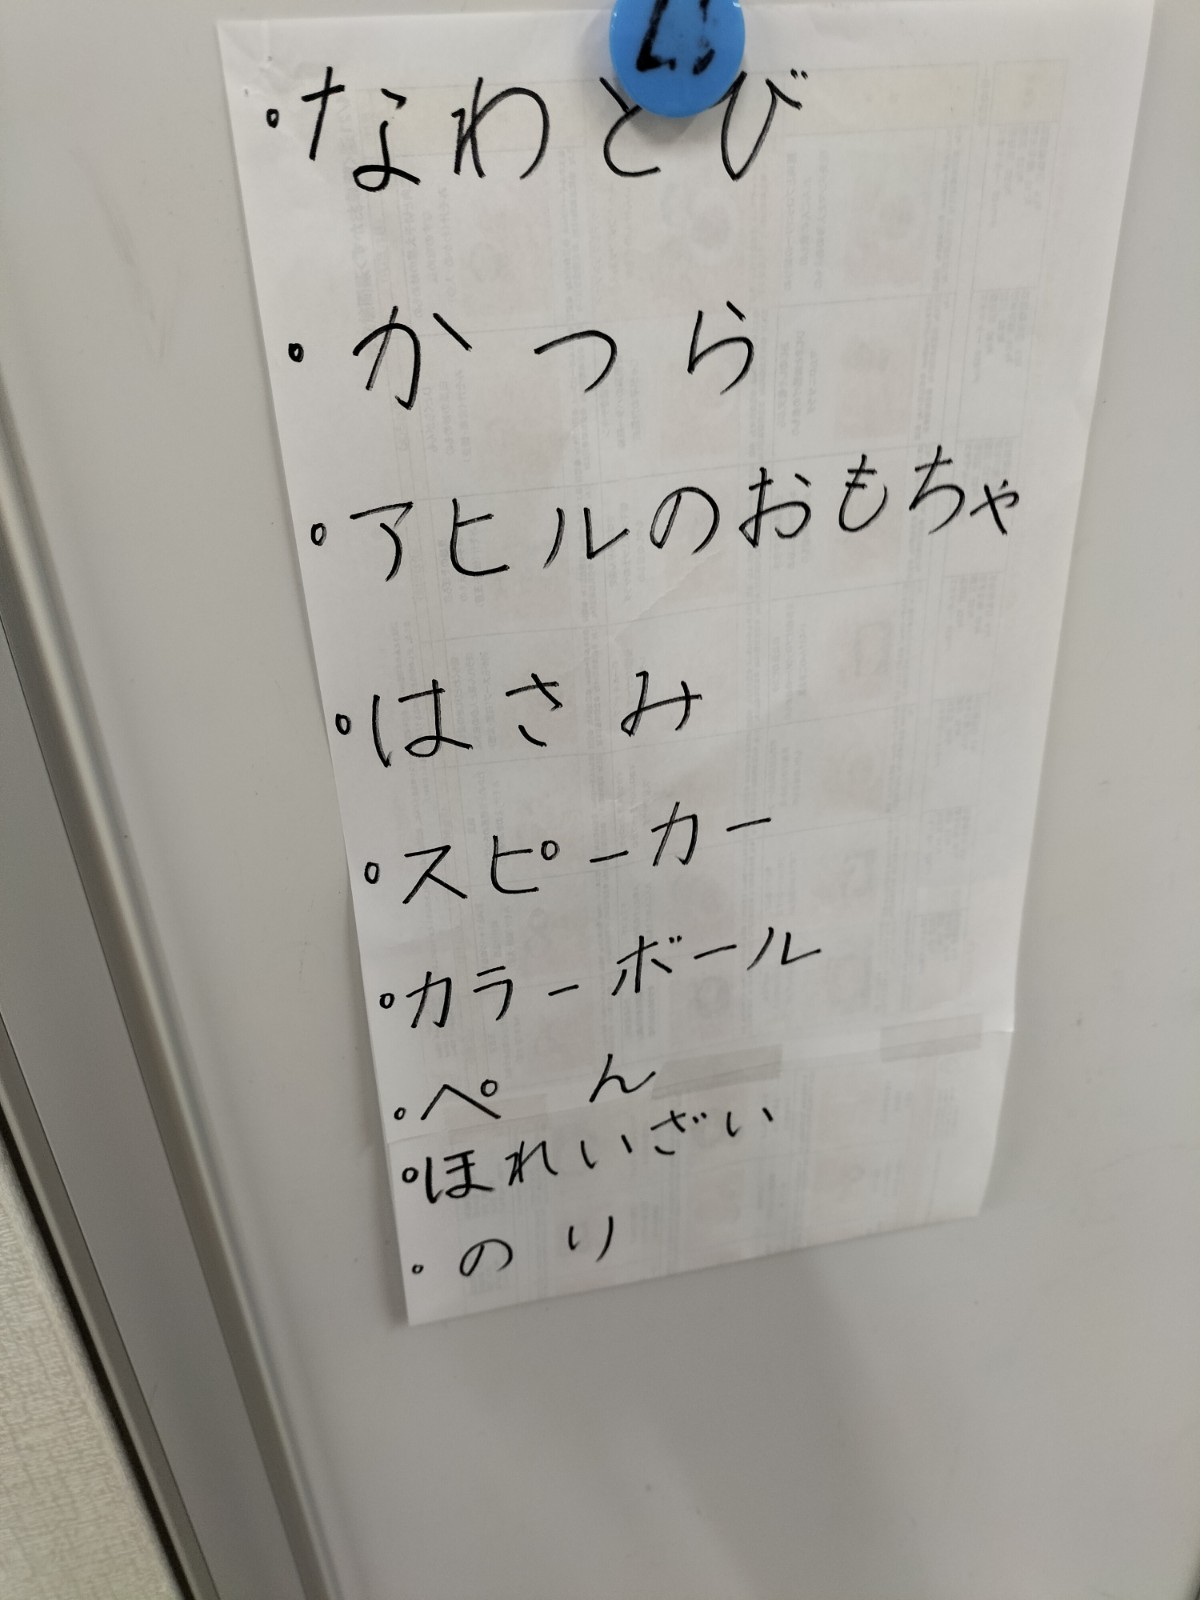 ・なわとび
・かつら
・アヒルのおもちゃ
・はさみ
・スピーカー
・カラーボール
・ぺん
・ほれいざい
・のり